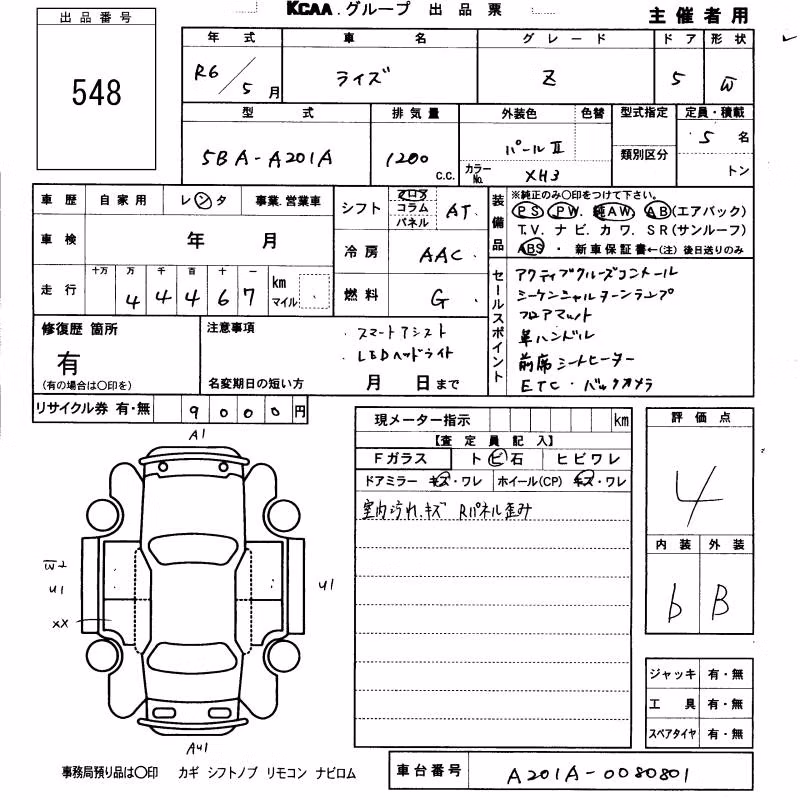 KCAA.グループ 出品票
主催者用
出品番号
548
年式 車名 グレード ドア 形状
R6/5月 ライズ Z 5 W
型式 排気量 外装色 色替 型式指定 定員・積載
5BA-A201A 1200 C.C. パールⅡ 類別区分 5名
カラーNo. XH3 トン
車歴 自家用 レンタ 事業.営業車
車検 年 月
走行 十万 万 千 百 十 一
44467 km マイル
シフト フロア コラム パネル AT.
冷房 AAC.
燃料 G.
装備品
※純正のみ○印をつけて下さい。
PS. PW. 純AW. AB(エアバック)
T.V. ナビ. カワ. SR(サンルーフ)
ABS ・ 新車保証書←(注) 後日送りのみ
セールスポイント
アクティブクルーズコントール
シーケンシャルターンランプ
フロアマット
革ハンドル
前席シートヒーター
ETC・バックカメラ
修復歴 箇所
有
(有の場合は○印を)
注意事項
・スマートアシスト
・LEDヘッドライト
名変期日の短い方 月 日まで
リサイクル券 有・無 9000円
現メーター指示 km
【査定員記入】
Fガラス トビ石 ヒビワレ
ドアミラー キズ・ワレ ホイール(CP) キズ・ワレ
室内汚れ.キズ Rパネル歪み
評価点
4
内装 外装
b B
ジャッキ 有・無
工具 有・無
スペアタイヤ 有・無
A1
W2
U1
XX
U1
AU1
事務局預り品は○印 カギ シフトノブ リモコン ナビロム
車台番号 A201A-0080801